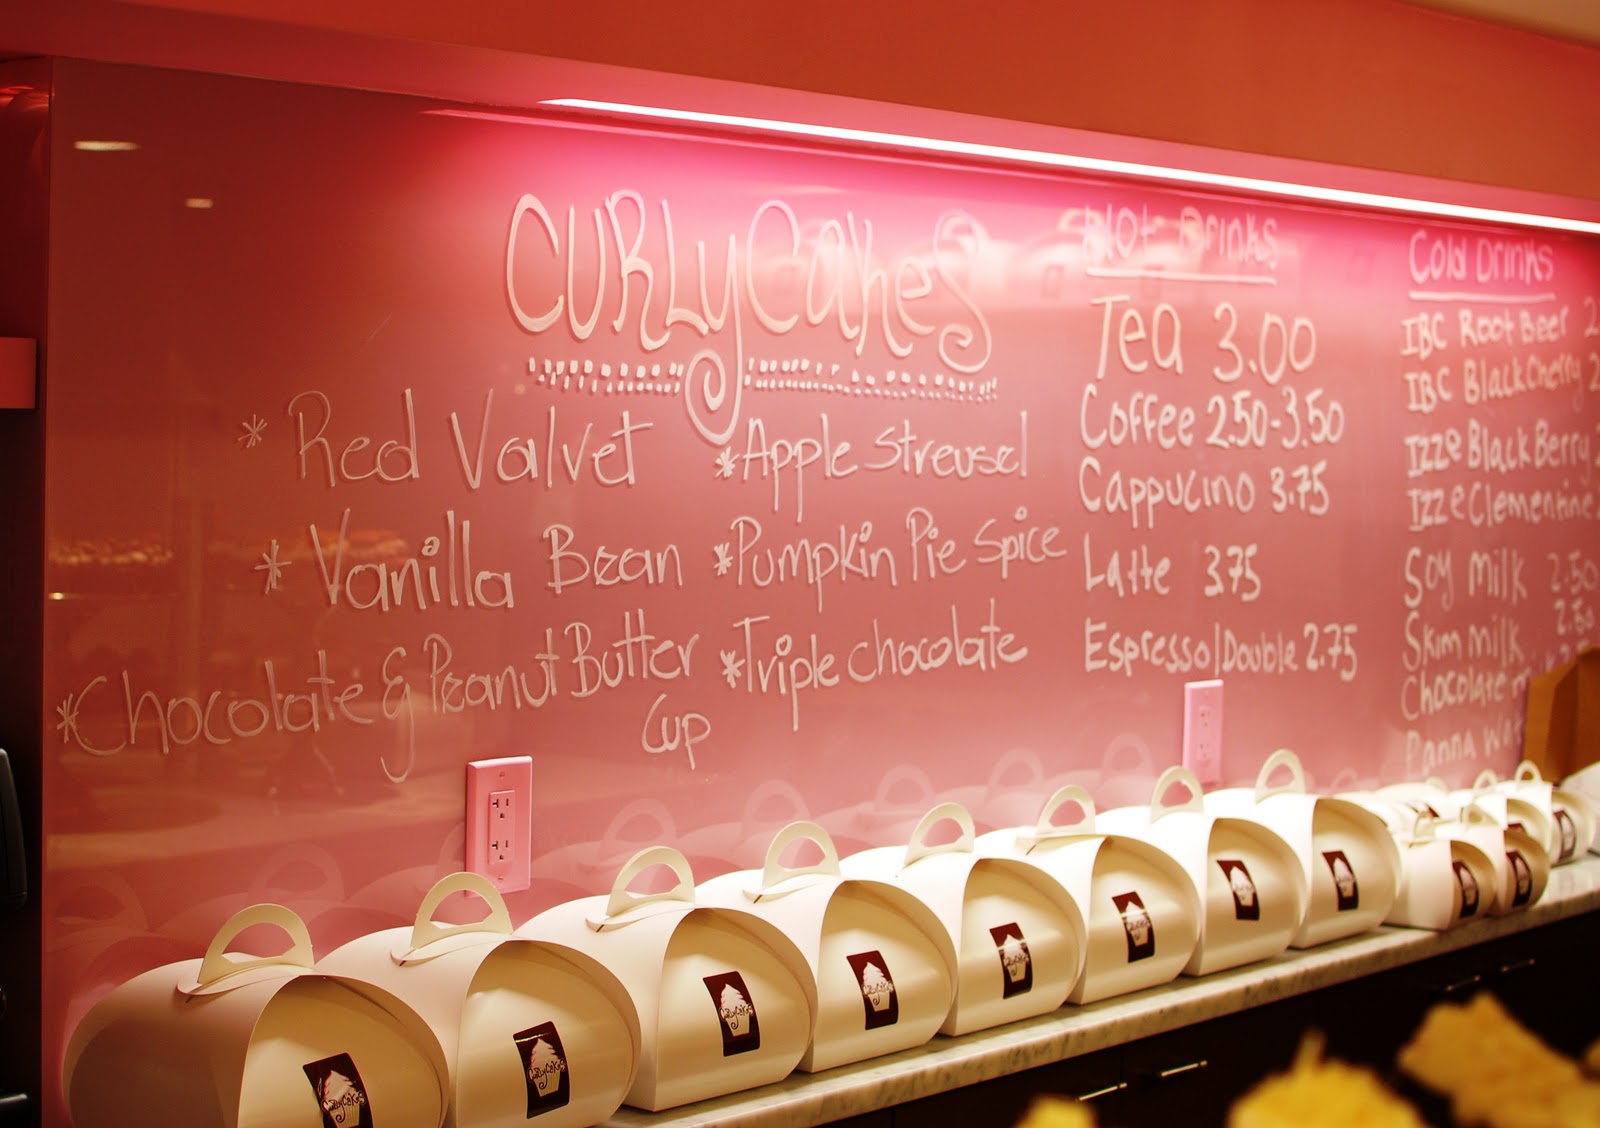 CURLyCakes
* Red Valvet
* Vanilla Bean
* Chocolate & Peanut Butter
Cup
* Apple streusel
* Pumpkin Pie Spice
* Triple chocolate
Hot Drinks
Tea 3.00
Coffee 2.50-3.50
Cappucino 3.75
Latte 3.75
Espresso/Double 2.75
Cold Drinks
IBC Root Beer
IBC Black Cherry
Izze Black Berry
Izze Clementine
Soy Milk 2.50
Skim Milk 2.50
Chocolate
Panna
CURLyCakes
CURLyCakes
CURLyCakes
CURLyCakes
CURLyCakes
CURLyCakes